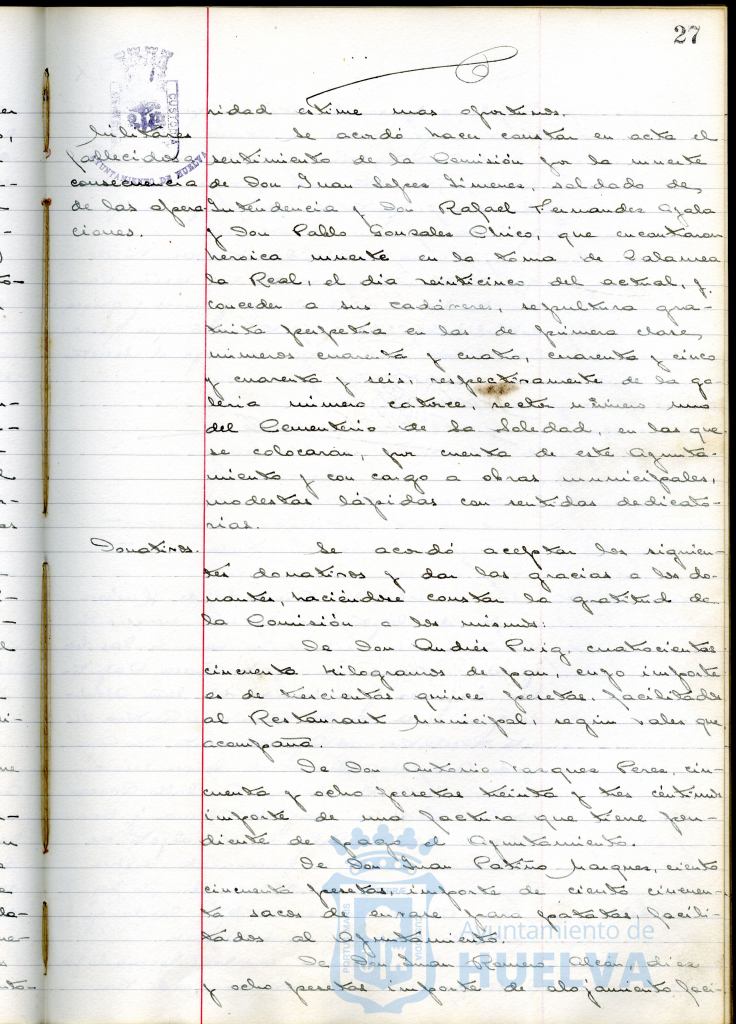 27
ridad estime mas oportunos.
Militares
fallecidos a
consecuencia
de las opera-
ciones.
Se acordó hacer constar en acta el
sentimiento de la Comisión por la muerte
de Don Juan Lopez Jimenez, soldado de
Intendencia y Don Rafael Fernandez Ayala
y Don Pablo Gonzalez Chico, que encontraron
heroica muerte en la toma de Zalamea
la Real, el dia veinticinco del actual, y
conceder a sus cadáveres, sepultura gra-
tuita perpetua en las de primera clase,
números cuarenta y cuatro, cuarenta y cinco
y cuarenta y seis, respectivamente de la ga-
leria número catorce, sector número uno
del Cementerio de La Soledad, en las que
se colocarán, por cuenta de este Ayunta-
miento y con cargo a obras municipales,
modestas lápidas con sentidas dedicato-
rias.
Donativos.
Se acordó aceptar los siguien-
tes donativos y dar las gracias a los do-
nantes, haciéndose constar la gratitud de
la Comisión a los mismos:
De Don Andrés Puig, cuatrocientos
cincuenta kilogramos de pan, cuyo importe
es de trescientas quince pesetas, facilitados
al Restaurant Municipal, según vales que
acompaña.
De Don Antonio Vazquez Perez, cin-
cuenta y ocho pesetas treinta y tres céntimos
importe de una factura que tiene pen-
diente de pago el Ayuntamiento.
De Don Juan Patiño Marquez, ciento
cincuenta pesetas, importe de ciento cincuen-
ta sacos de envase para patatas, facili-
tados al Ayuntamiento.
De Don Juan Romero Alcón diez
y ocho pesetas importe de alojamiento faci-
Ayuntamiento de
HUELVA
AYUNTAMIENTO DE HUELVA